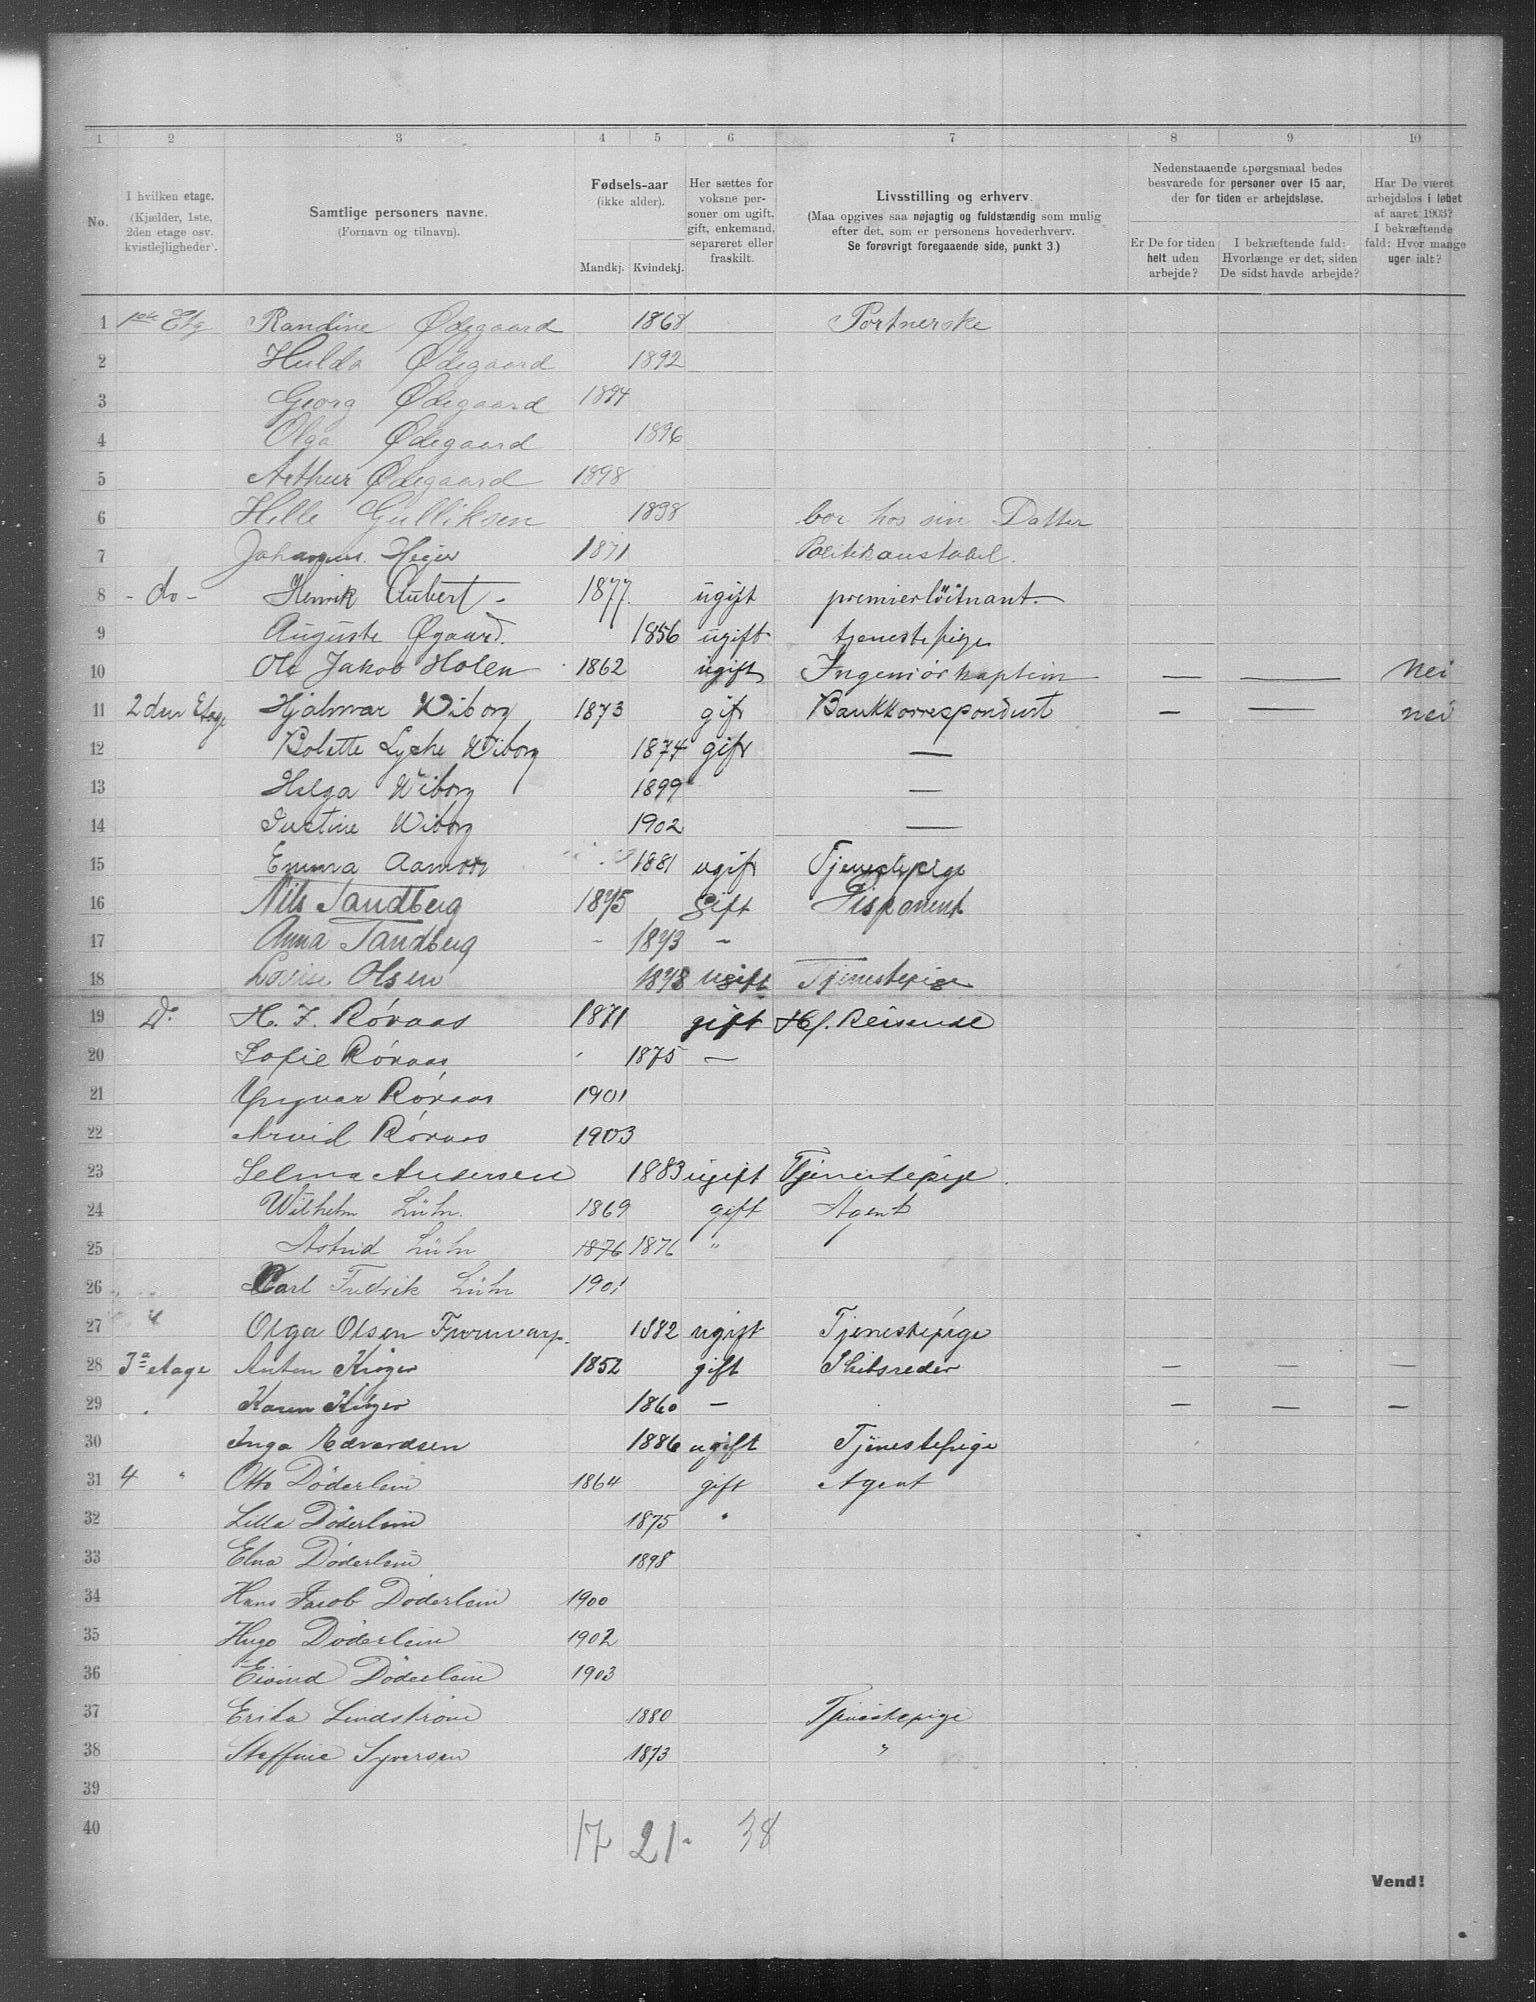 1 2 3 4 5 6 7 8 9 10
No.
I hvilken etage.
(Kjælder, 1ste, 2den etage osv. kvistlejligheder).
Samtlige personers navne.
(Fornavn og tilnavn).
Fødsels-aar
(ikke alder).
Mandkj. Kvindekj.
Her sættes for voksne personer om ugift, gift, enkemand, separeret eller fraskilt.
Livsstilling og erhverv.
(Maa opgives saa nøjagtig og fuldstændig som mulig efter det, som er personens hovederhverv.
Se forøvrigt foregaaende side, punkt 3.)
Nedenstaaende spørgsmaal bedes besvarede for personer over 15 aar, der for tiden er arbejdsløse.
Er De for tiden helt uden arbejde?
I bekræftende fald: Hvorlænge er det, siden De sidst havde arbejde?
Har De været arbejdsløs i løbet af aaret 1903? I bekræftende fald: Hvor mange uger ialt?
1 1ste Etg Randine Ødegaard 1868 Portnerske
2 Hulda Ødegaard 1892
3 Georg Ødegaard 1894
4 Olga Ødegaard 1896
5 Arthur Ødegaard 1898
6 Helle Gulliksen 1838 bor hos sin Datter
7 Johannes Heier 1871 Politikonstabel.
8 - do - Henrik Aubert - 1877. ugift premierløitnant -
9 Auguste Øgaard. 1856 ugift tjenestepige
10 Ole Jakob Holen 1862 ugift Ingeniørkaptein — — Nei
11 2den Etage Hjalmar Wiborg 1873 gift Bankkorrespondent — — nei
12 Bolette Lyche Wiborg 1874 gift —
13 Helga Wiborg 1899 —
14 Justine Wiborg 1902 —
15 Emma Aamodt 1881 ugift Tjenestepige
16 Nils Tandberg 1875 Gift Disponent
17 Anna Tandberg - 1873 -
18 Lovise Olsen 1878 ugift Tjenestepige
19 Do H. F. Røraas 1871 gift Hf. Reisende
20 Sofie Røraas 1875 —
21 Yngvar Røraas 1901
22 Arvid Røraas 1903
23 Selma Andersen 1883 ugift Tjenestepige.
24 Wilhelm Lühr 1869 gift Agent
25 Astrid Lühr 1876 1876 "
26 Carl Fredrik Lühr 1901
27 " Olga Olsen 1882 ugift Tjenestepige
28 3die etage Anton Krøger 1852 gift Skibsreder — — —
29 Karen Krøger 1860 — — — —
30 Inga Edvardsen 1886 ugift Tjenestepige
31 4 " Otto Døderlein 1864 gift Agent
32 Lilla Døderlein 1875 "
33 Elna Døderlein 1898
34 Hans Jacob Døderlein 1900
35 Hugo Døderlein 1902
36 Eivind Døderlein 1903
37 Erika Lindstrøm 1880 Tjenestepige
38 Steffine Syversen 1873 "
39
40
17 21- 38
Vend!